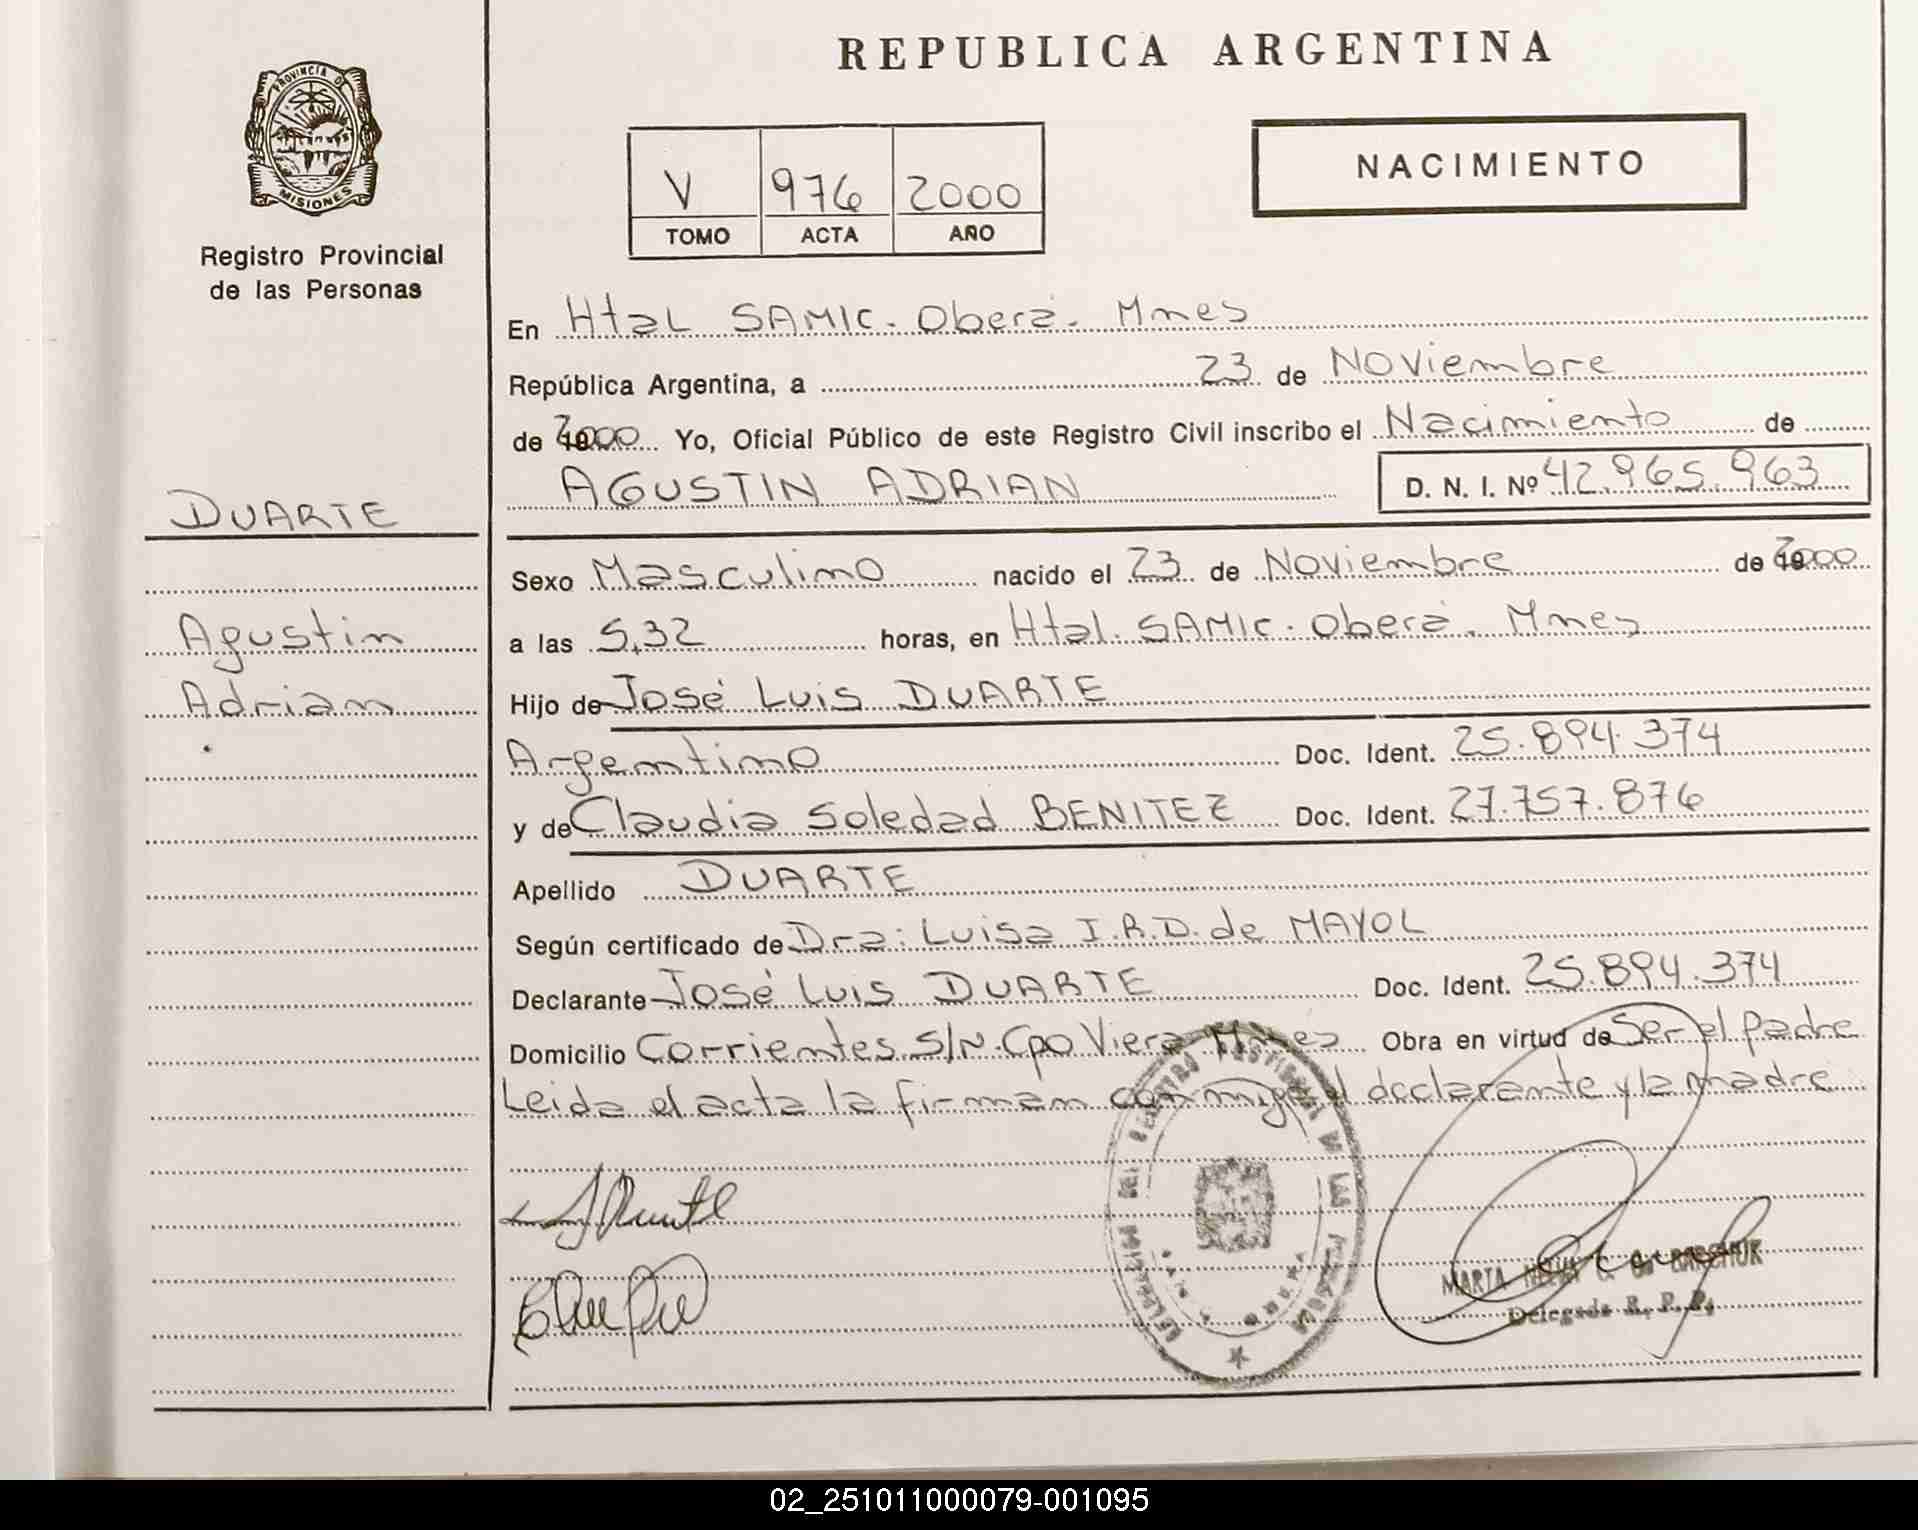 REPUBLICA ARGENTINA
PROVINCIA DE
MISIONES
Registro Provincial
de las Personas
V 976 2000
TOMO ACTA AÑO
NACIMIENTO
En Htal SAMIC. Oberá. Mnes
República Argentina, a 23 de Noviembre
de 2000 Yo, Oficial Público de este Registro Civil inscribo el Nacimiento de
AGUSTIN ADRIAN D. N. I. Nº 42.965.963
DUARTE
Agustin
Adrian
Sexo Masculino nacido el 23 de Noviembre de 2000
a las 5,32 horas, en Htal. SAMIC. Oberá. Mnes
Hijo de José Luis DUARTE
Argentino Doc. Ident. 25.894.374
y de Claudia Soledad BENITEZ Doc. Ident. 27.757.876
Apellido DUARTE
Según certificado de Dra: Luisa I.R.D. de MAYOL
Declarante José Luis DUARTE Doc. Ident. 25.894.374
Domicilio Corrientes S/N. Cpo Viera Mnes Obra en virtud de Ser el padre
Leida el acta la firman conmigo el declarante y la madre
MARTA
Delegada R. P. P.
02_251011000079-001095